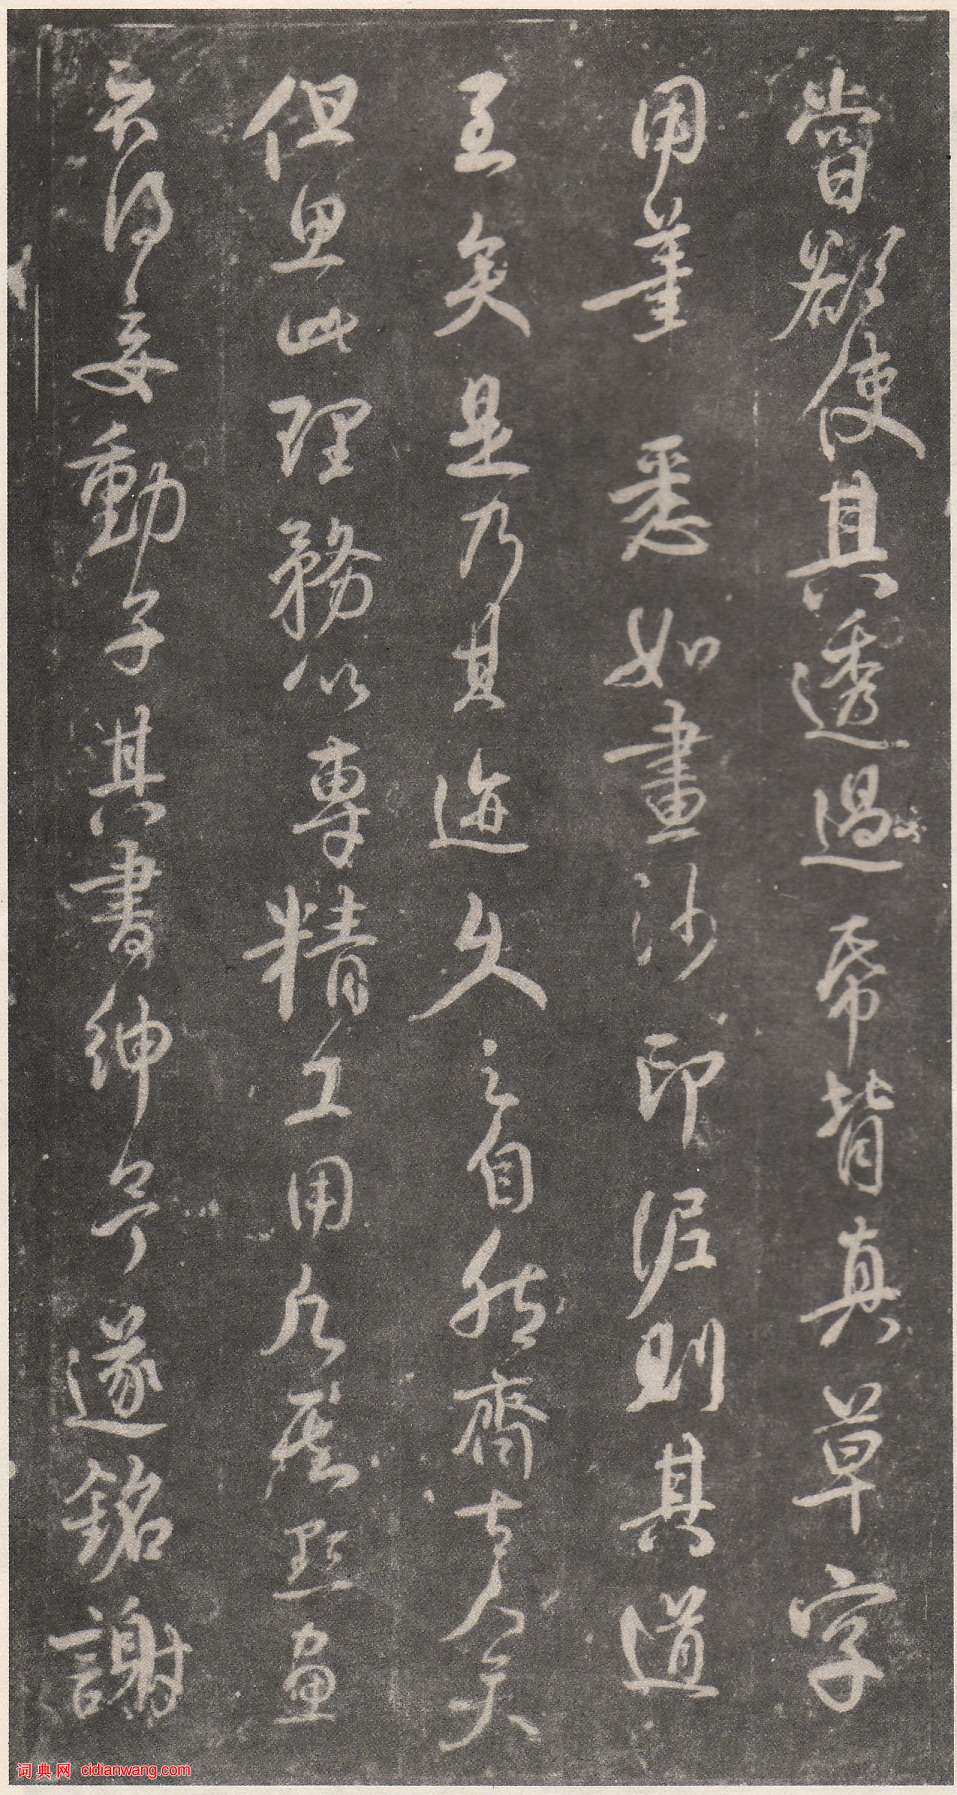 嘗欲使其透過帋背真草字
用筆悉如畫沙印泥則其道
至矣是乃其迹久之自然齊古人矣
但思此理務以專精工用故其點畫
不得妄動子其書紳余遂銘謝
词典网 cidianwang.com